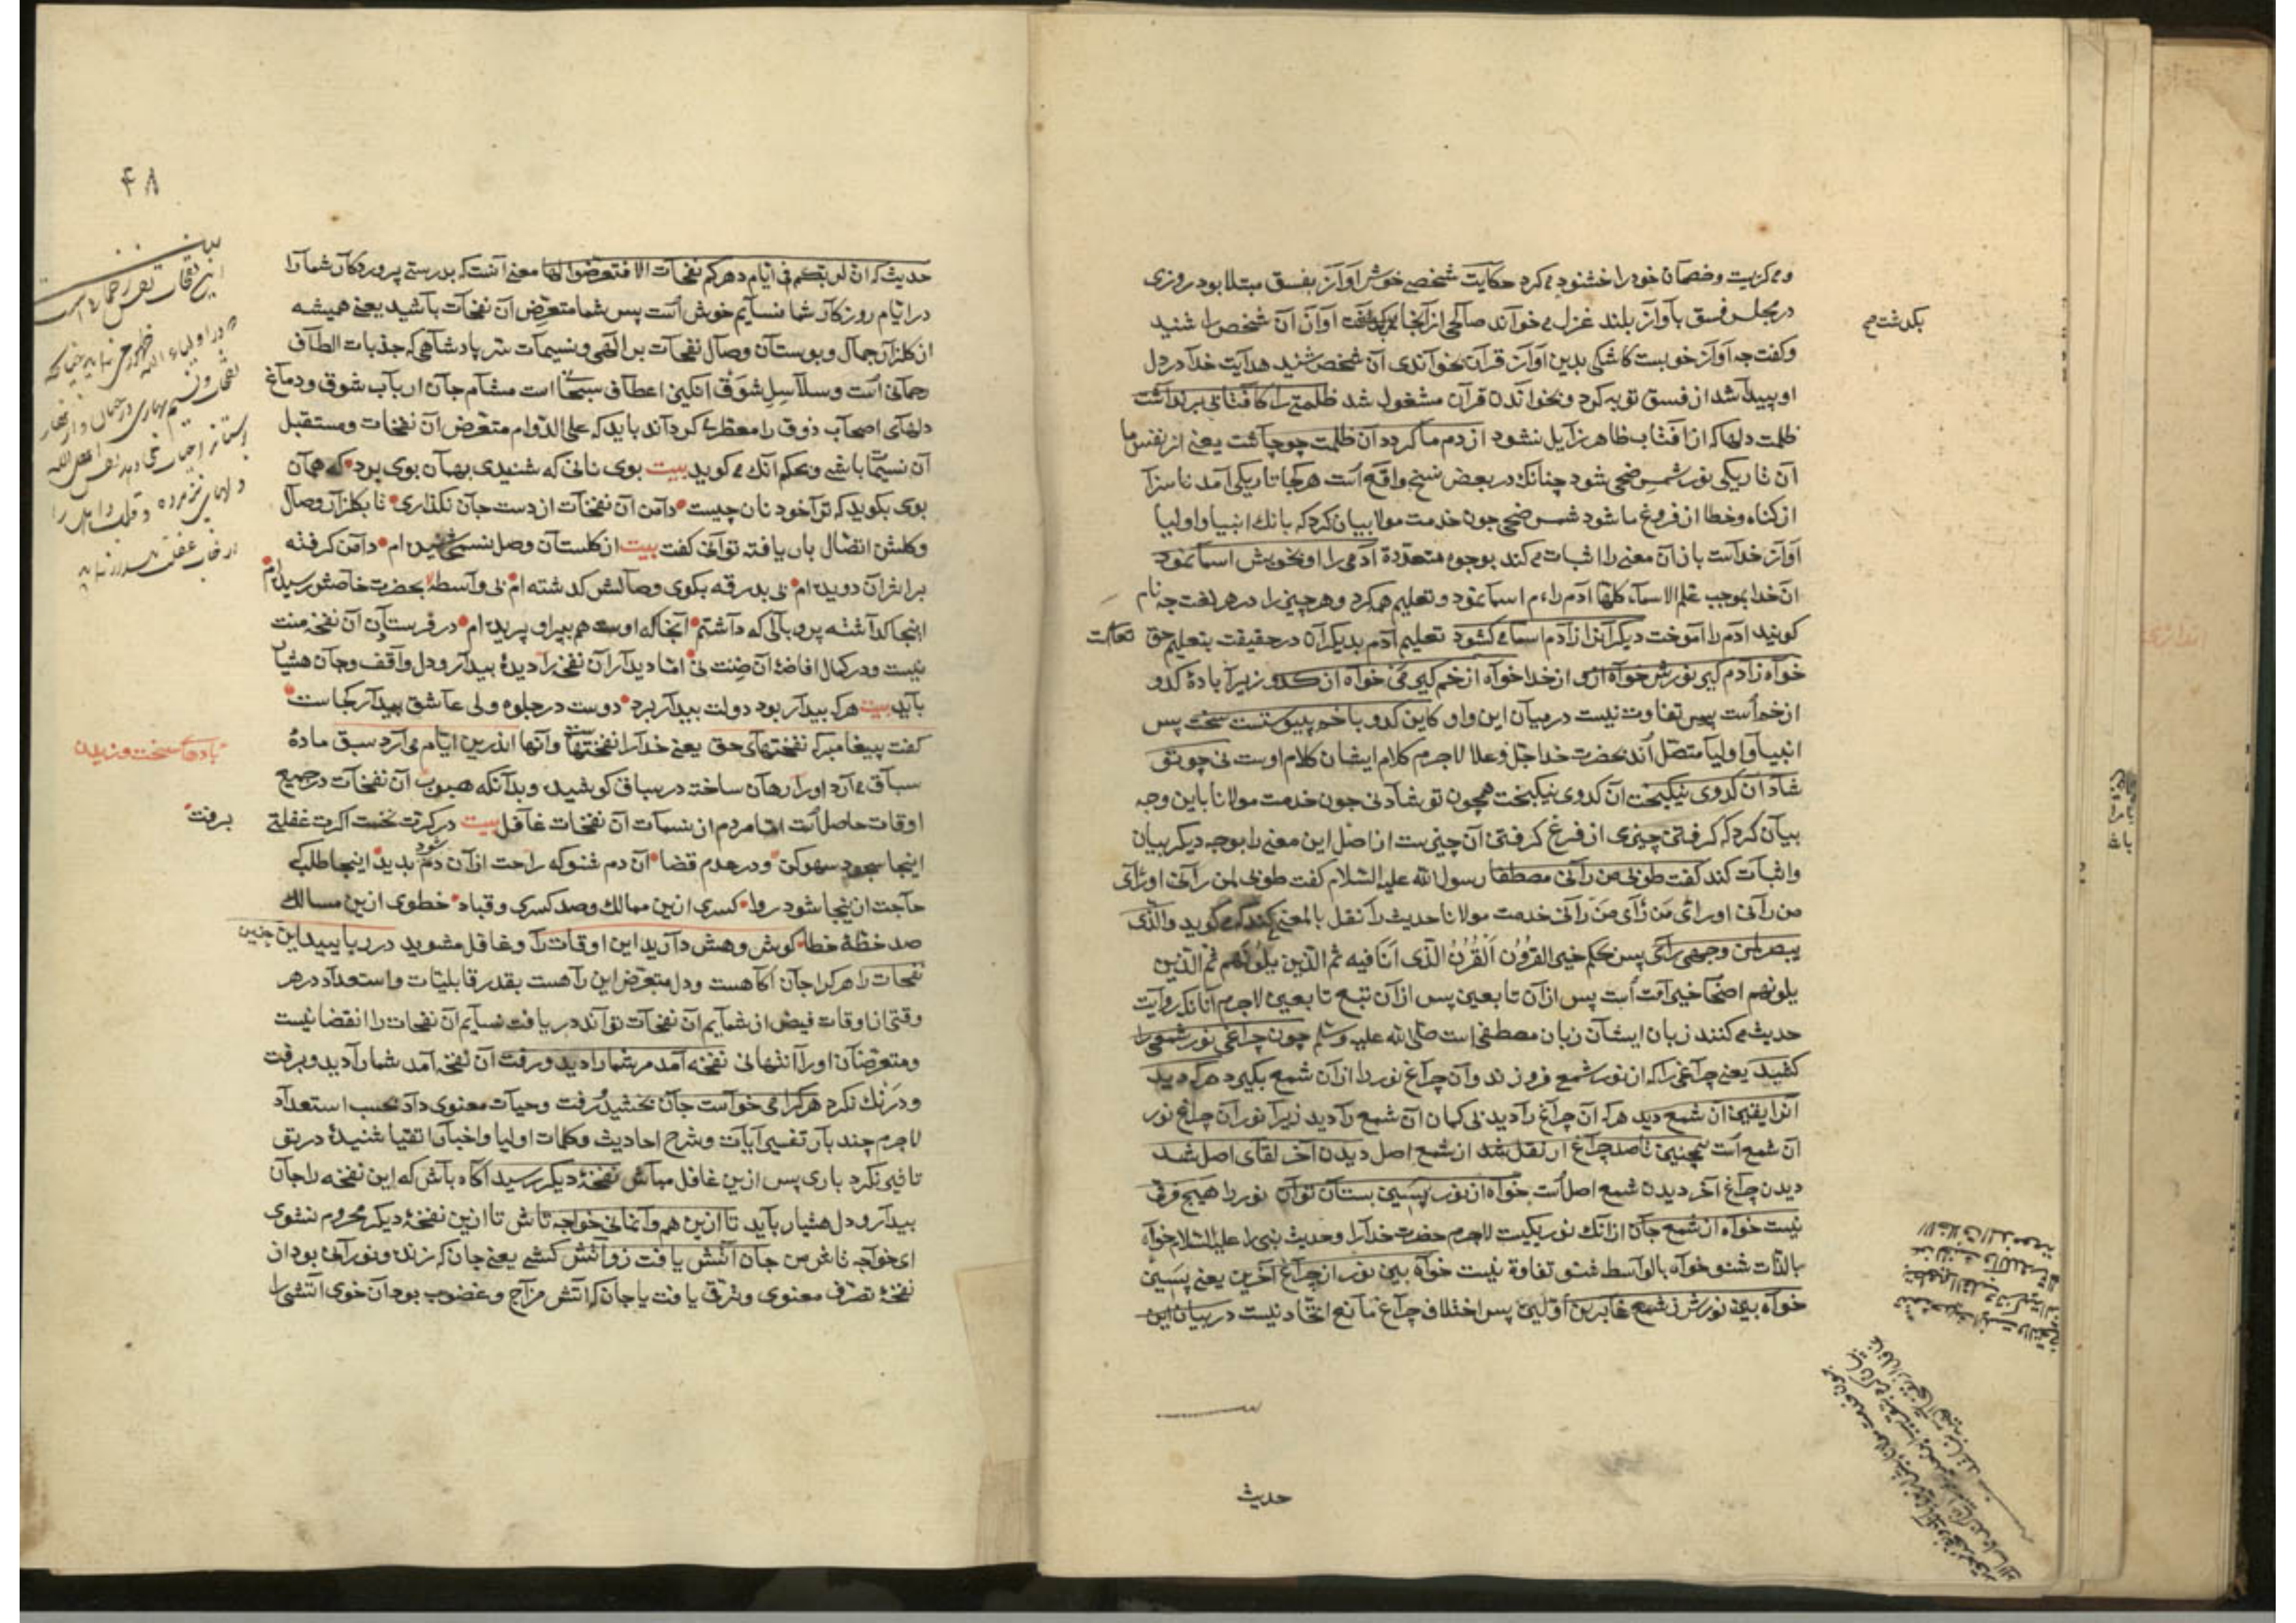 ومی کریست وخصمان خودرا خشنود می کرد حکایت شخصی خوش آواز بفسق مبتلا بود روزی
در مجلس فسق بآواز بلند غزل می خواند صالحی از آنجا آوازان آن شخص را شنید
بکذشت صح
وکفت چه آواز خوبست کاشکی بدین آواز قرآن بخواندی آن شخص شنید هدایت خدا در دل
او پیدا شد از فسق توبه کرد وبخواندن قرآن مشغول شد ظلمتی را کافتابی برنداشت
ظلمت دلها که از آفتاب ظاهر زایل نشود از دم ما کردد آن ظلمت چو چاشت یعنی از نفس ما
آن تاریکی نور شمس ضحی شود چنانک در بعض نسخ واقع است هر کجا تاریکی آمد ناسزا
از کناه وخطا از فروغ ما شود شمس ضحی چون خدمت مولا بیان کرد که بانك انبیا واولیا
آواز خداست باز آن معنی را اثبات می کند بوجوه متعدده آدمی را او بخویش اسما نمود
آن خدا بموجب علم الاسماء کلها آدم را اسما نمود وتعلیم کرد وهر چیزی را در هر لغت چه نام
کویند آدم را آموخت دیکرانرا از آدم اسما می کشود تعلیم آدم بدیکران در حقیقت بتعلیم حق تعالیست
خواه ز آدم کیر نورش خواه ازو از خدا خواه از خم کیر می خواه از کدو زیرا باده کدو
از خم است پس تفاوت نیست در میان این واو کاین کدو با خم پیوستست سخت پس
انبیا واولیا متصل اند بحضرت خدا جل وعلا لاجرم کلام ایشان کلام اوست نی چو تو
شاد آن کدوی نیکبخت آن کدوی نیکبخت همچون تو شاد نی چون خدمت مولانا باین وجه
بیان کرد که کرفتن چیزی از فرع کرفتن آن چیزست از اصل این معنی را بوجه دیکر بیان
واثبات کند کفت طوبی من رآنی مصطفا رسول الله علیه السلام کفت طوبی لمن رآنی اورأی
من رآنی اورأی من رأی من رآنی خدمت مولانا حدیث را نقل بالمعنی می کوید والذی
یبصر لمن وجهی رأی پس بحکم خیر القرون القرن الذی انا فیه ثم الذین یلونهم ثم الذین
یلونهم اصحاب خیر امت است پس از آن تابعین پس از آن تبع تابعین لاجرم آنانکه روایت
حدیث می کنند زبان ایشان زبان مصطفی است صلی الله علیه وسلم چون چراغی نور شمعی را
کشید یعنی چراغی را که از نور شمع فروزند وآن چراغ نور را از آن شمع بکیرد هر که دید
آنرا یقین آن شمع دید هر که آن چراغ را دید بی کمان آن شمع را دید زیرا نور آن چراغ نور
آن شمع است همچنین تا صد چراغ ار نقل شد از شمع اصل دیدن آخر لقای اصل شد
دیدن چراغ آخر دیدن شمع اصل است خواه از نور پسین بستان توان نور را هیچ فرقی
نیست خواه از شمع جان از آنك نور یکیست لاجرم حضرت خدا را وحدیث نبی را علیه السلام خواه
بالذات شنو خواه بالواسطه شنو تفاوة نیست خواه بین نور از چراغ آخرین یعنی پسین
خواه بین نورش ز شمع غابرین اولین پس اختلاف چراغ مانع اتحاد نیست در بیان این
حدیث
۴۸
حدیث که ان لربکم فی ایام دهرکم نفحات الا فتعرضوا لها معنی آنست که بدرستی پروردکار شما را
در ایام روزکار شما نسایم خوش است پس شما متعرض آن نفحات باشید یعنی همیشه
از کلزار جمال وبوستان وصال نفحات بر الهی ونسیمات سر پادشاهی که جذبات الطاف
رحمانی است وسلاسل شوق انکیز اعطاف سبحانی است مشام جان ارباب شوق ودماغ
دلهای اصحاب ذوق را معطر می کرداند باید که علی الدوام متعرض آن نفحات ومستقبل
آن نسیمها باشی وبحکم آنك می کوید بیت بوی نانی که شنیدی بهمان بوی برو که همان
بوی بکوید که ترا خود نان چیست دامن آن نفحات از دست جان نکذاری تا بکلزار وصال
وکلشن اتصال بار یافته توانی کفت بیت از کلستان وصل نسمی شنیده ام دامن کرفته
بر اثر آن دویده ام بی بدرقه بکوی وصالش کذشته ام بی واسطه بحضرت خاصش رسیده ام
اینجا کذاشته پر وبالی که داشتم آنجا که اوست هم بپر او پریده ام در فرستادن آن نفخه منت
نیست ودر کمال افاضه آن ضنت نی اما دیدار آن نفخه را دیده بیدار ودل واقف وجان هشیار
باید بیت هر که بیدار بود دولت بیدار برد دوست در جلوه ولی عاشق بیدار کجاست
کفت پیغامبر که نفحتهای حق یعنی خدا را نفحتهاست وآنها اندرین ایام می آرد سبق ماده
بادهای سخت وزیدن
سباق می آرد او را رهان ساخته در سباق کوشید وبدانکه هبوب آن نفحات در جمیع
اوقات حاصل است اما مردم از نسمات آن نفحات غافل بیت در کرت نخست اکرت غفلتی
برفت
اینجا سجود سهو کن ودر عدم قضا آن دم شنو که راحت ازآن دم شود بدید اینجا طلب که
حاجت از اینجا شود روا کسری ازین ممالک وصد کسری وقباد خطوی ازین مسالك
صد خطه خطا کوش وهش دارید این اوقات را وغافل مشوید در ربایید این چنین
نفحات را هر کرا جان آکاهست ودل متعرض این راهست بقدر قابلیات واستعداد در هر
وقتی از اوقات فیض از شمایم آن نفحات تواند دریافت نسایم آن نفحات را انقضا نیست
ومتعرضان او را انتها نی نفحه آمد مر شما را دید ورفت آن نفخه آمد شما را دید وبرفت
ودرنك نکرد هر کرا می خواست جان بخشید ورفت وحیات معنوی داد بحسب استعداد
لاجرم چند بار تفسیر آیات وشرح احادیث وکلمات اولیا واخبار اتقیا شنیده در تو
تاثیر نکرد باری پس ازین غافل مباش نفخه دیکر رسید آکاه باش که این نفخه را جان
بیدار ودل هشیار باید تا ازین هم وانمانی خواجه تاش تا ازین نفخه دیکر محروم نشوی
ای خواجه تاش من جان آتش یافت زو آتش کشی یعنی جان که زنده ونورانی بود از
نفخه تصرف معنوی وترقی یافت یا جان که آتش مزاج وغضوب بود آن خوی آتشی را